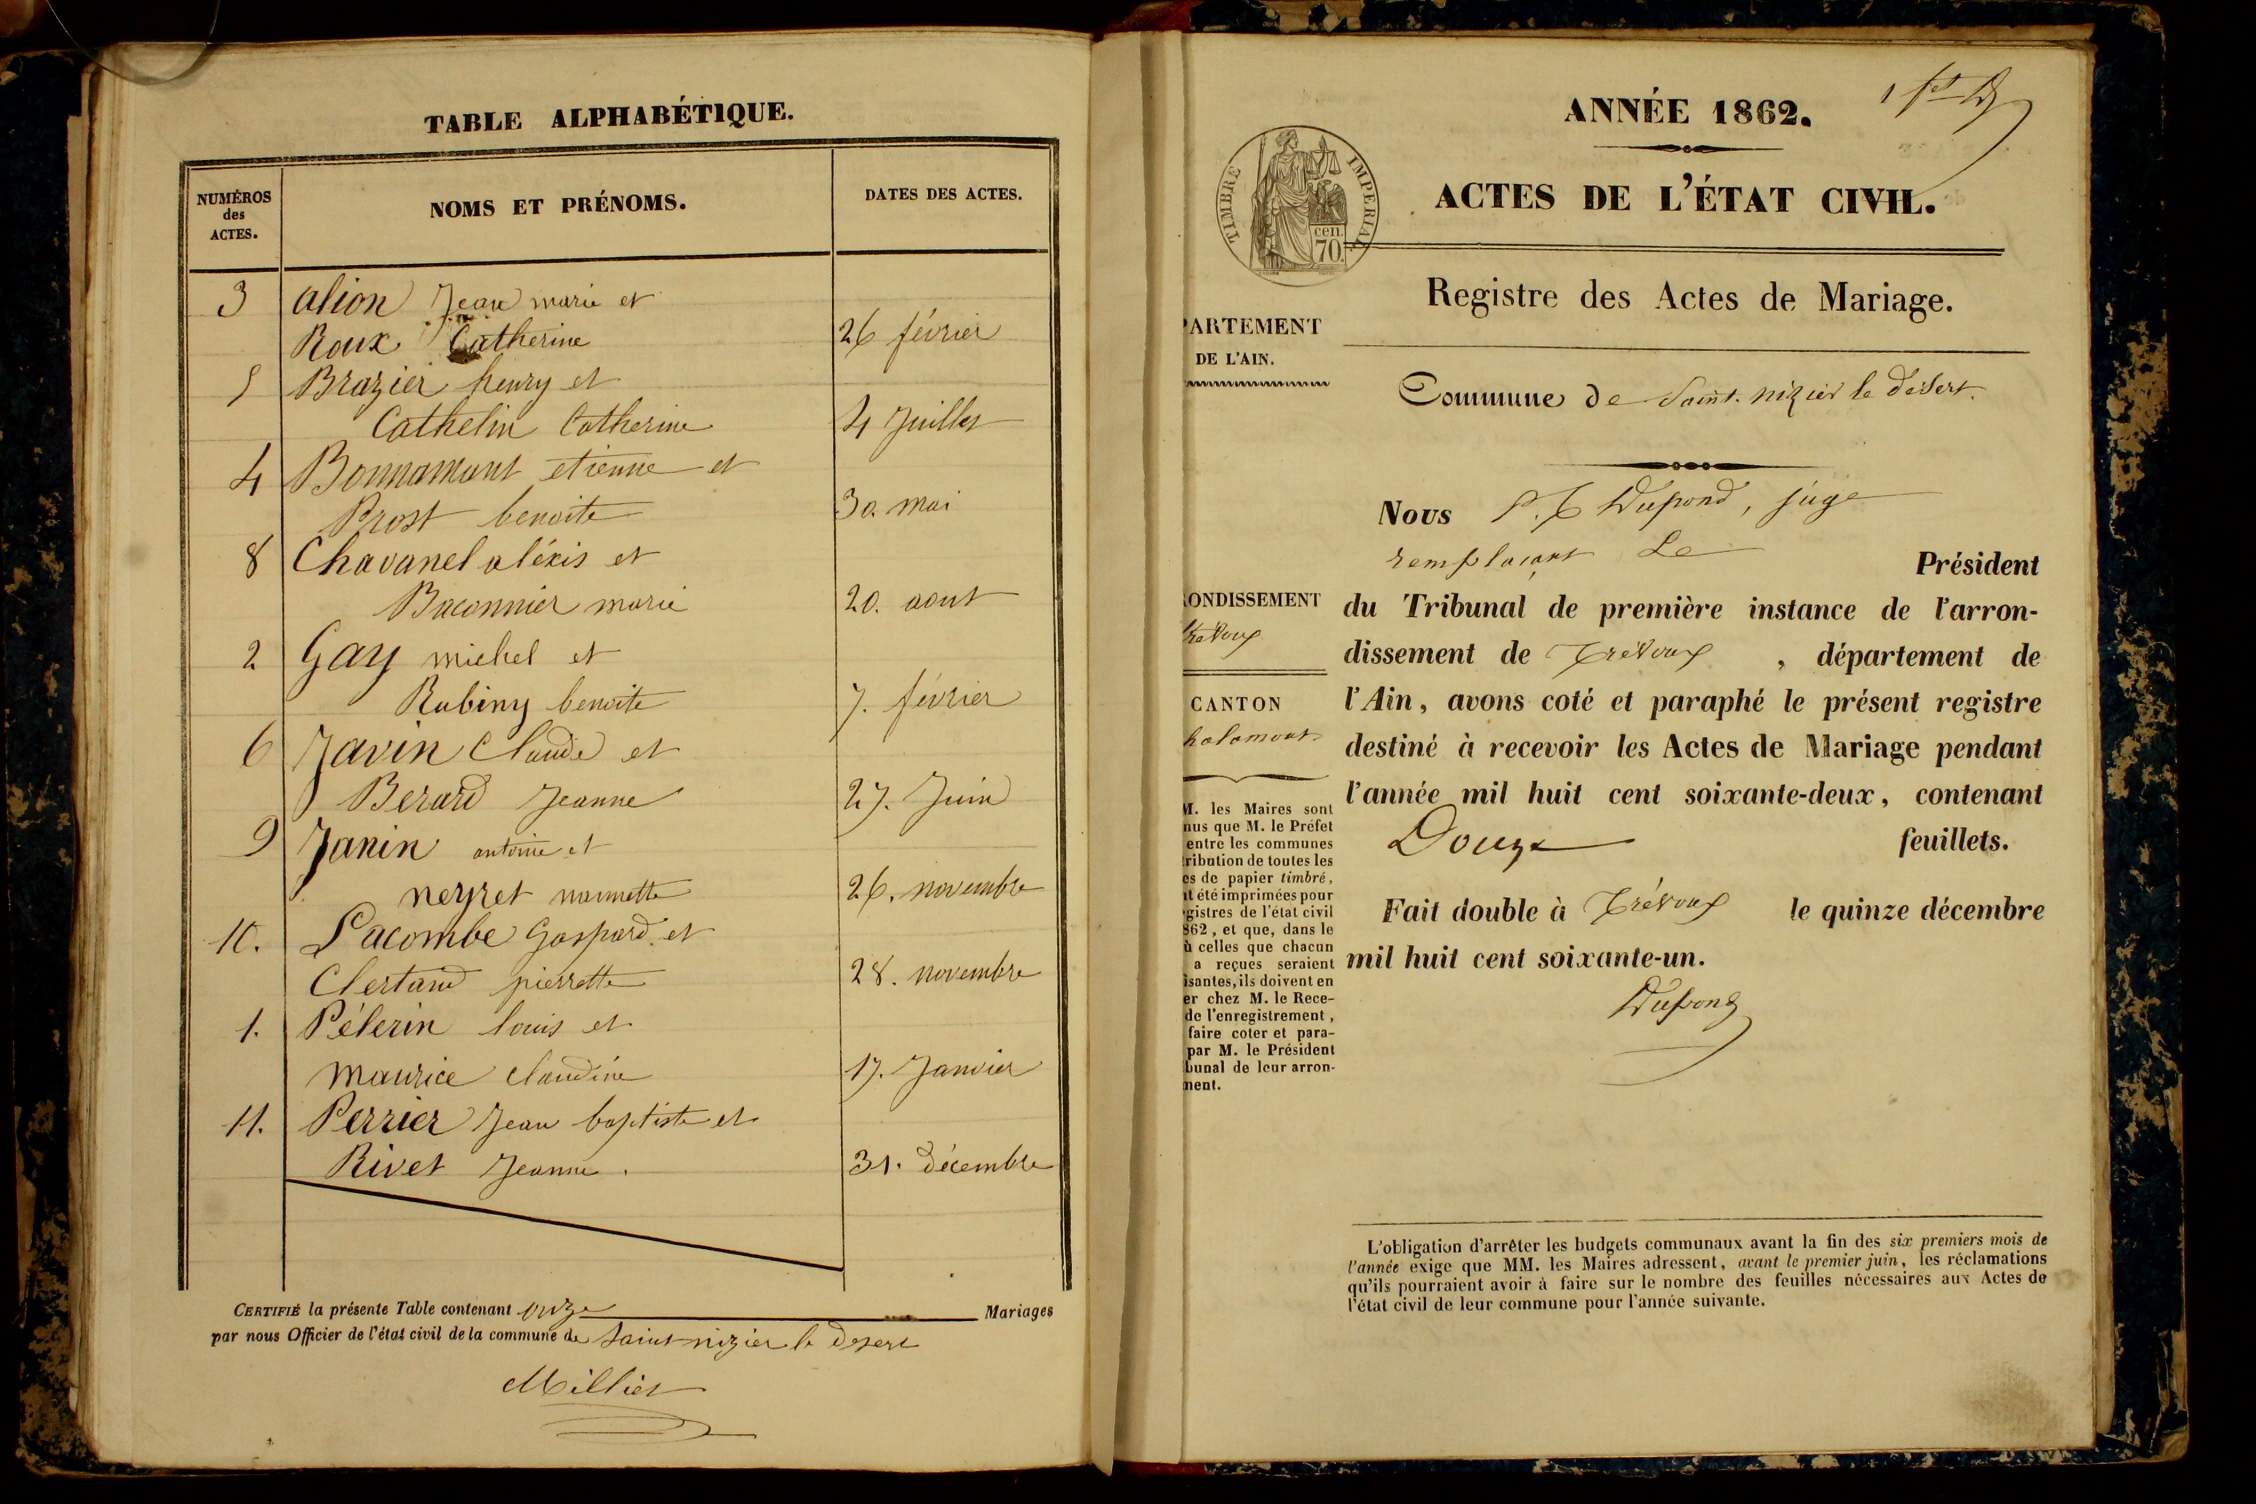 TABLE ALPHABÉTIQUE.
NUMÉROS
des
ACTES.
NOMS ET PRÉNOMS.
DATES DES ACTES.
3 alion Jean marie et
Roux Catherine 26 février
5 Brazier henry et
Cathelin Catherine 4 Juillet
4 Bonnamant etienne et
Prost benoite 30. mai
8 Chavanel aléxis et
Baconnier marie 20. aout
2 Gay michel et
Rubiny benoite 7. février
6 Javin Claude et
Berard Jeanne 27. Juin
9 Janin antoine et
neyret nannette 26. novembre
10. Lacombe Gaspard et
Clertand pierrette 28. novembre
1. Pélerin louis et
maurice claudine 17. Janvier
11. Perrier Jean baptiste et
Rivet Jeanne. 31. décembre
CERTIFIÉ la présente Table contenant onze Mariages
par nous Officier de l'état civil de la commune de Saint nizier le desert
Milliet
ANNÉE 1862.
ACTES DE L'ÉTAT CIVIL.
TIMBRE IMPERIAL
cen.
70.
Registre des Actes de Mariage.
PARTEMENT
DE L'AIN.
Commune de Saint. nizier le désert.
Nous Dupond, juge
remplaçant Le Président
du Tribunal de première instance de l'arron-
dissement de Trévoux, département de
l'Ain, avons coté et paraphé le présent registre
destiné à recevoir les Actes de Mariage pendant
l'année mil huit cent soixante-deux, contenant
Douze feuillets.
Fait double à Trévoux le quinze décembre
mil huit cent soixante-un.
Dupond
RONDISSEMENT
Trévoux
CANTON
halamont
M. les Maires sont
nus que M. le Préfet
entre les communes
tribution de toutes les
es de papier timbré,
nt été imprimées pour
gistres de l'état civil
862, et que, dans le
ù celles que chacun
a reçues seraient
isantes, ils doivent en
er chez M. le Rece-
de l'enregistrement,
faire coter et para-
par M. le Président
bunal de leur arron-
ment.
L'obligation d'arrêter les budgets communaux avant la fin des six premiers mois de
l'année exige que MM. les Maires adressent, avant le premier juin, les réclamations
qu'ils pourraient avoir à faire sur le nombre des feuilles nécessaires aux Actes de
l'état civil de leur commune pour l'année suivante.